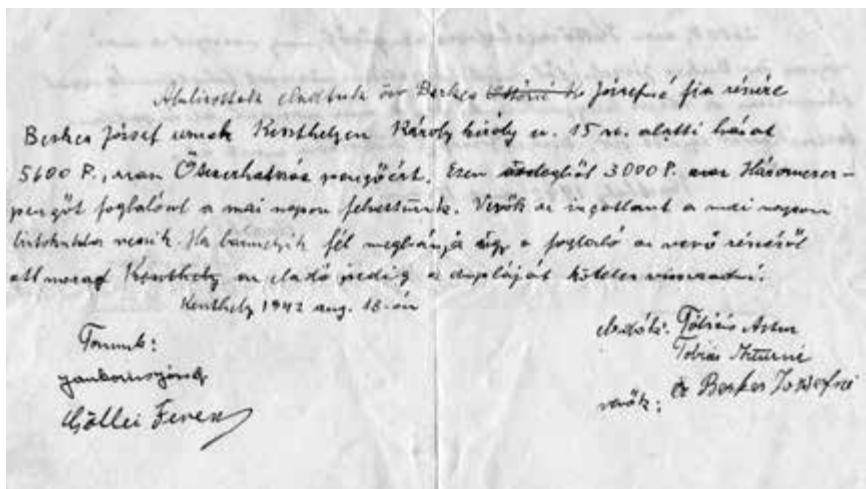 Alulírottak eladtuk öv Berkes Józsefné fia részére
Berkes József urnak Keszthelyen Károly király u. 15 sz. alatti házat
5600 P., azaz Ötezerhatszáz pengőért. Ezen összegből 3000 P. azaz Háromezer-
pengőt foglalóul a mai napon felvettünk. Vevők az ingatlant a mai napon
birtokukba veszik. Ha bármelyik fél megbánja úgy a foglaló a vevő részéről
ott marad az eladó pedig a dupláját köteles visszaadni.
Keszthely 1942 aug. 18-án
Tanuk:
Göllei Ferenc
eladók: Tóbiás Artur
Tobiás Arturné
vevők: öz Berkes Józsefné